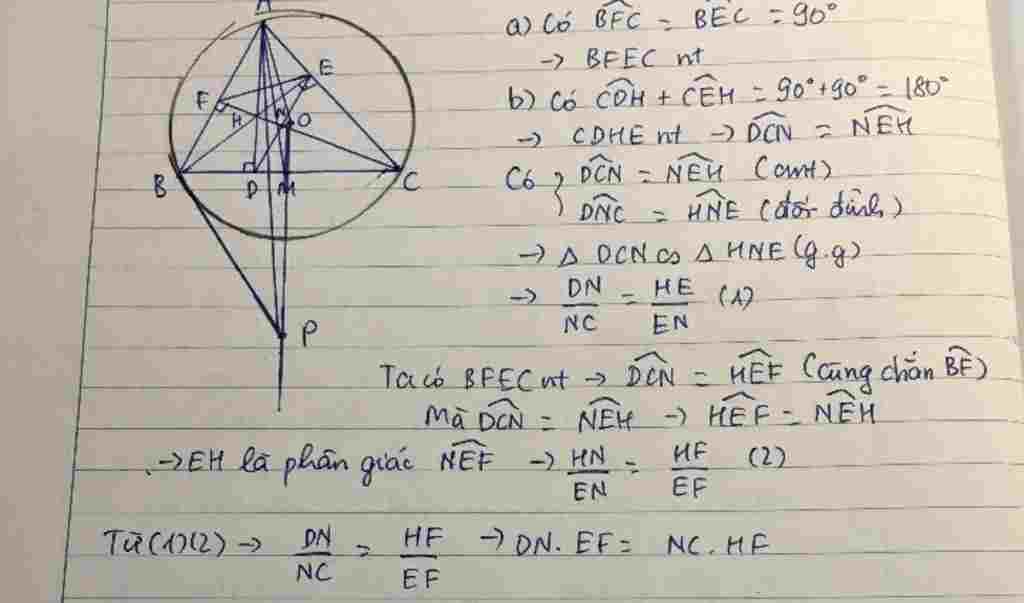 A
E
F
H
N
O
B
D
M
C
P
a) Có BFC = BEC = 90°
→ BFEC nt
b) Có CDH + CEH = 90° + 90° = 180°
→ CDHE nt → DCN = NEH
Có } DCN = NEH (cmt)
DNC = HNE (đối đỉnh)
→ Δ DCN ∽ Δ HNE (g.g)
→ DN/NC = HE/EN (1)
Ta có BFEC nt → DCN = HEF (cùng chắn BF)
Mà DCN = NEH → HEF = NEH
→ EH là phân giác NEF → HN/EN = HF/EF (2)
Từ (1)(2) → DN/NC = HF/EF → DN. EF = NC. HF